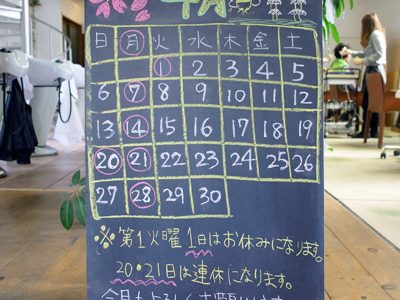 4月
日 月 火 水 木 金 土
1 2 3 4 5
6 7 8 9 10 11 12
13 14 15 16 17 18 19
20 21 22 23 24 25 26
27 28 29 30
※第1火曜1日はお休みになります。
20・21日は連休になります。